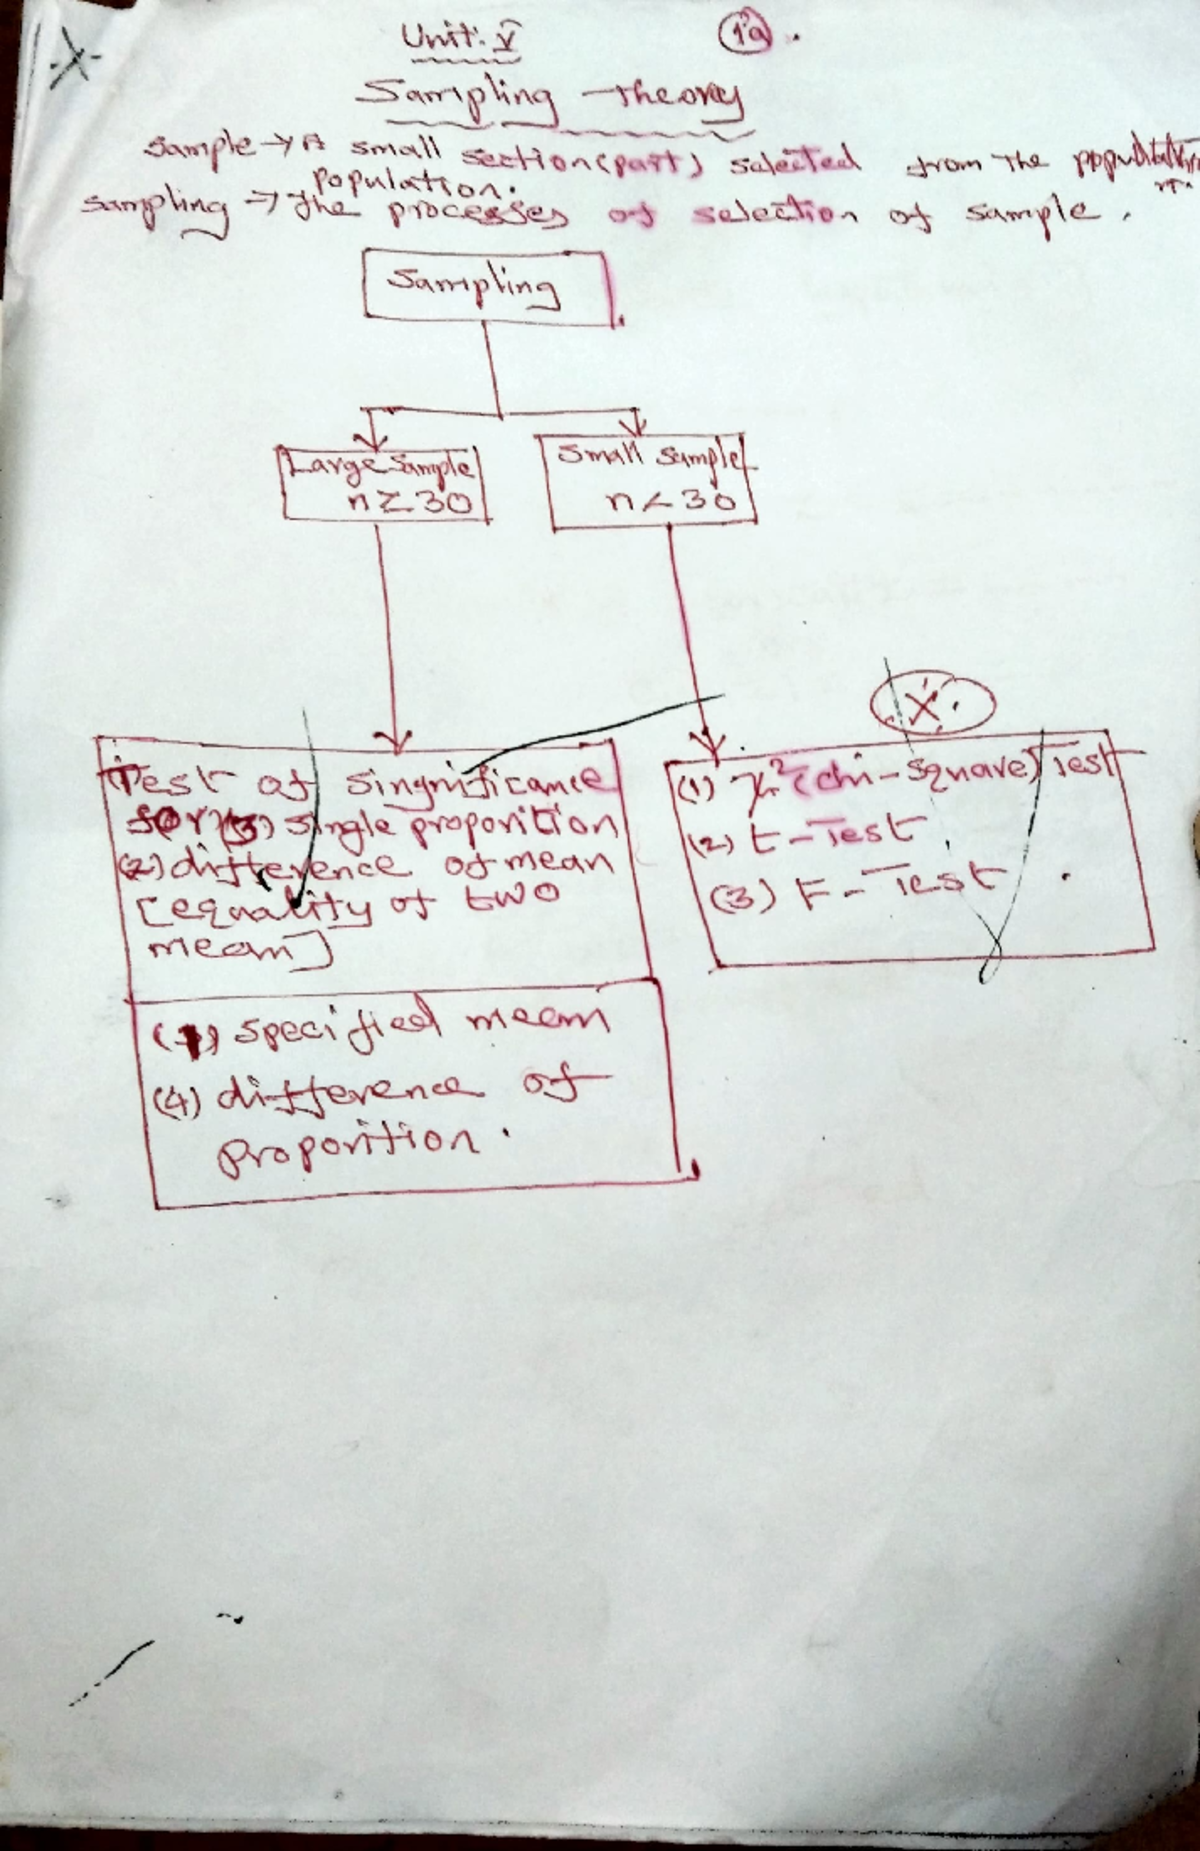 Unit: V
Sampling Theory
Sample → A small section (part) selected from the
population.
Sampling → The processes of selection of sample.
Sampling
Large Sample
n ≥ 30
Small Sample
n < 30
X
Test of Singnificance
for (3) Single proporition
(2) difference of mean
[equality of two
mean]
(1) χ² (chi-square) Test
(2) t-Test
(3) F-Test
(1) Specified mean
(4) difference of
Proporition.